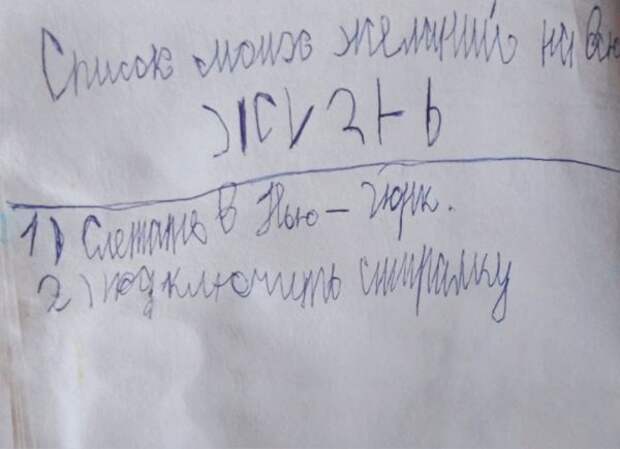 Список моих желаний на всю
ЖИЗНЬ
1) Слетать в Нью-Йорк.
2) подключить стиралку